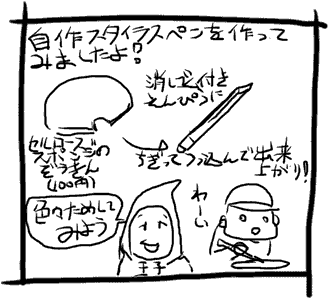 自作スタイラスペンを作って
みましたよ!!
消しゴム付き
えんぴつに
セルロースの
スポンジの
ぞうきん
(100円)
ちぎってつっ込んで出来
上がり!
色々ためして
みよう
わーい
王子